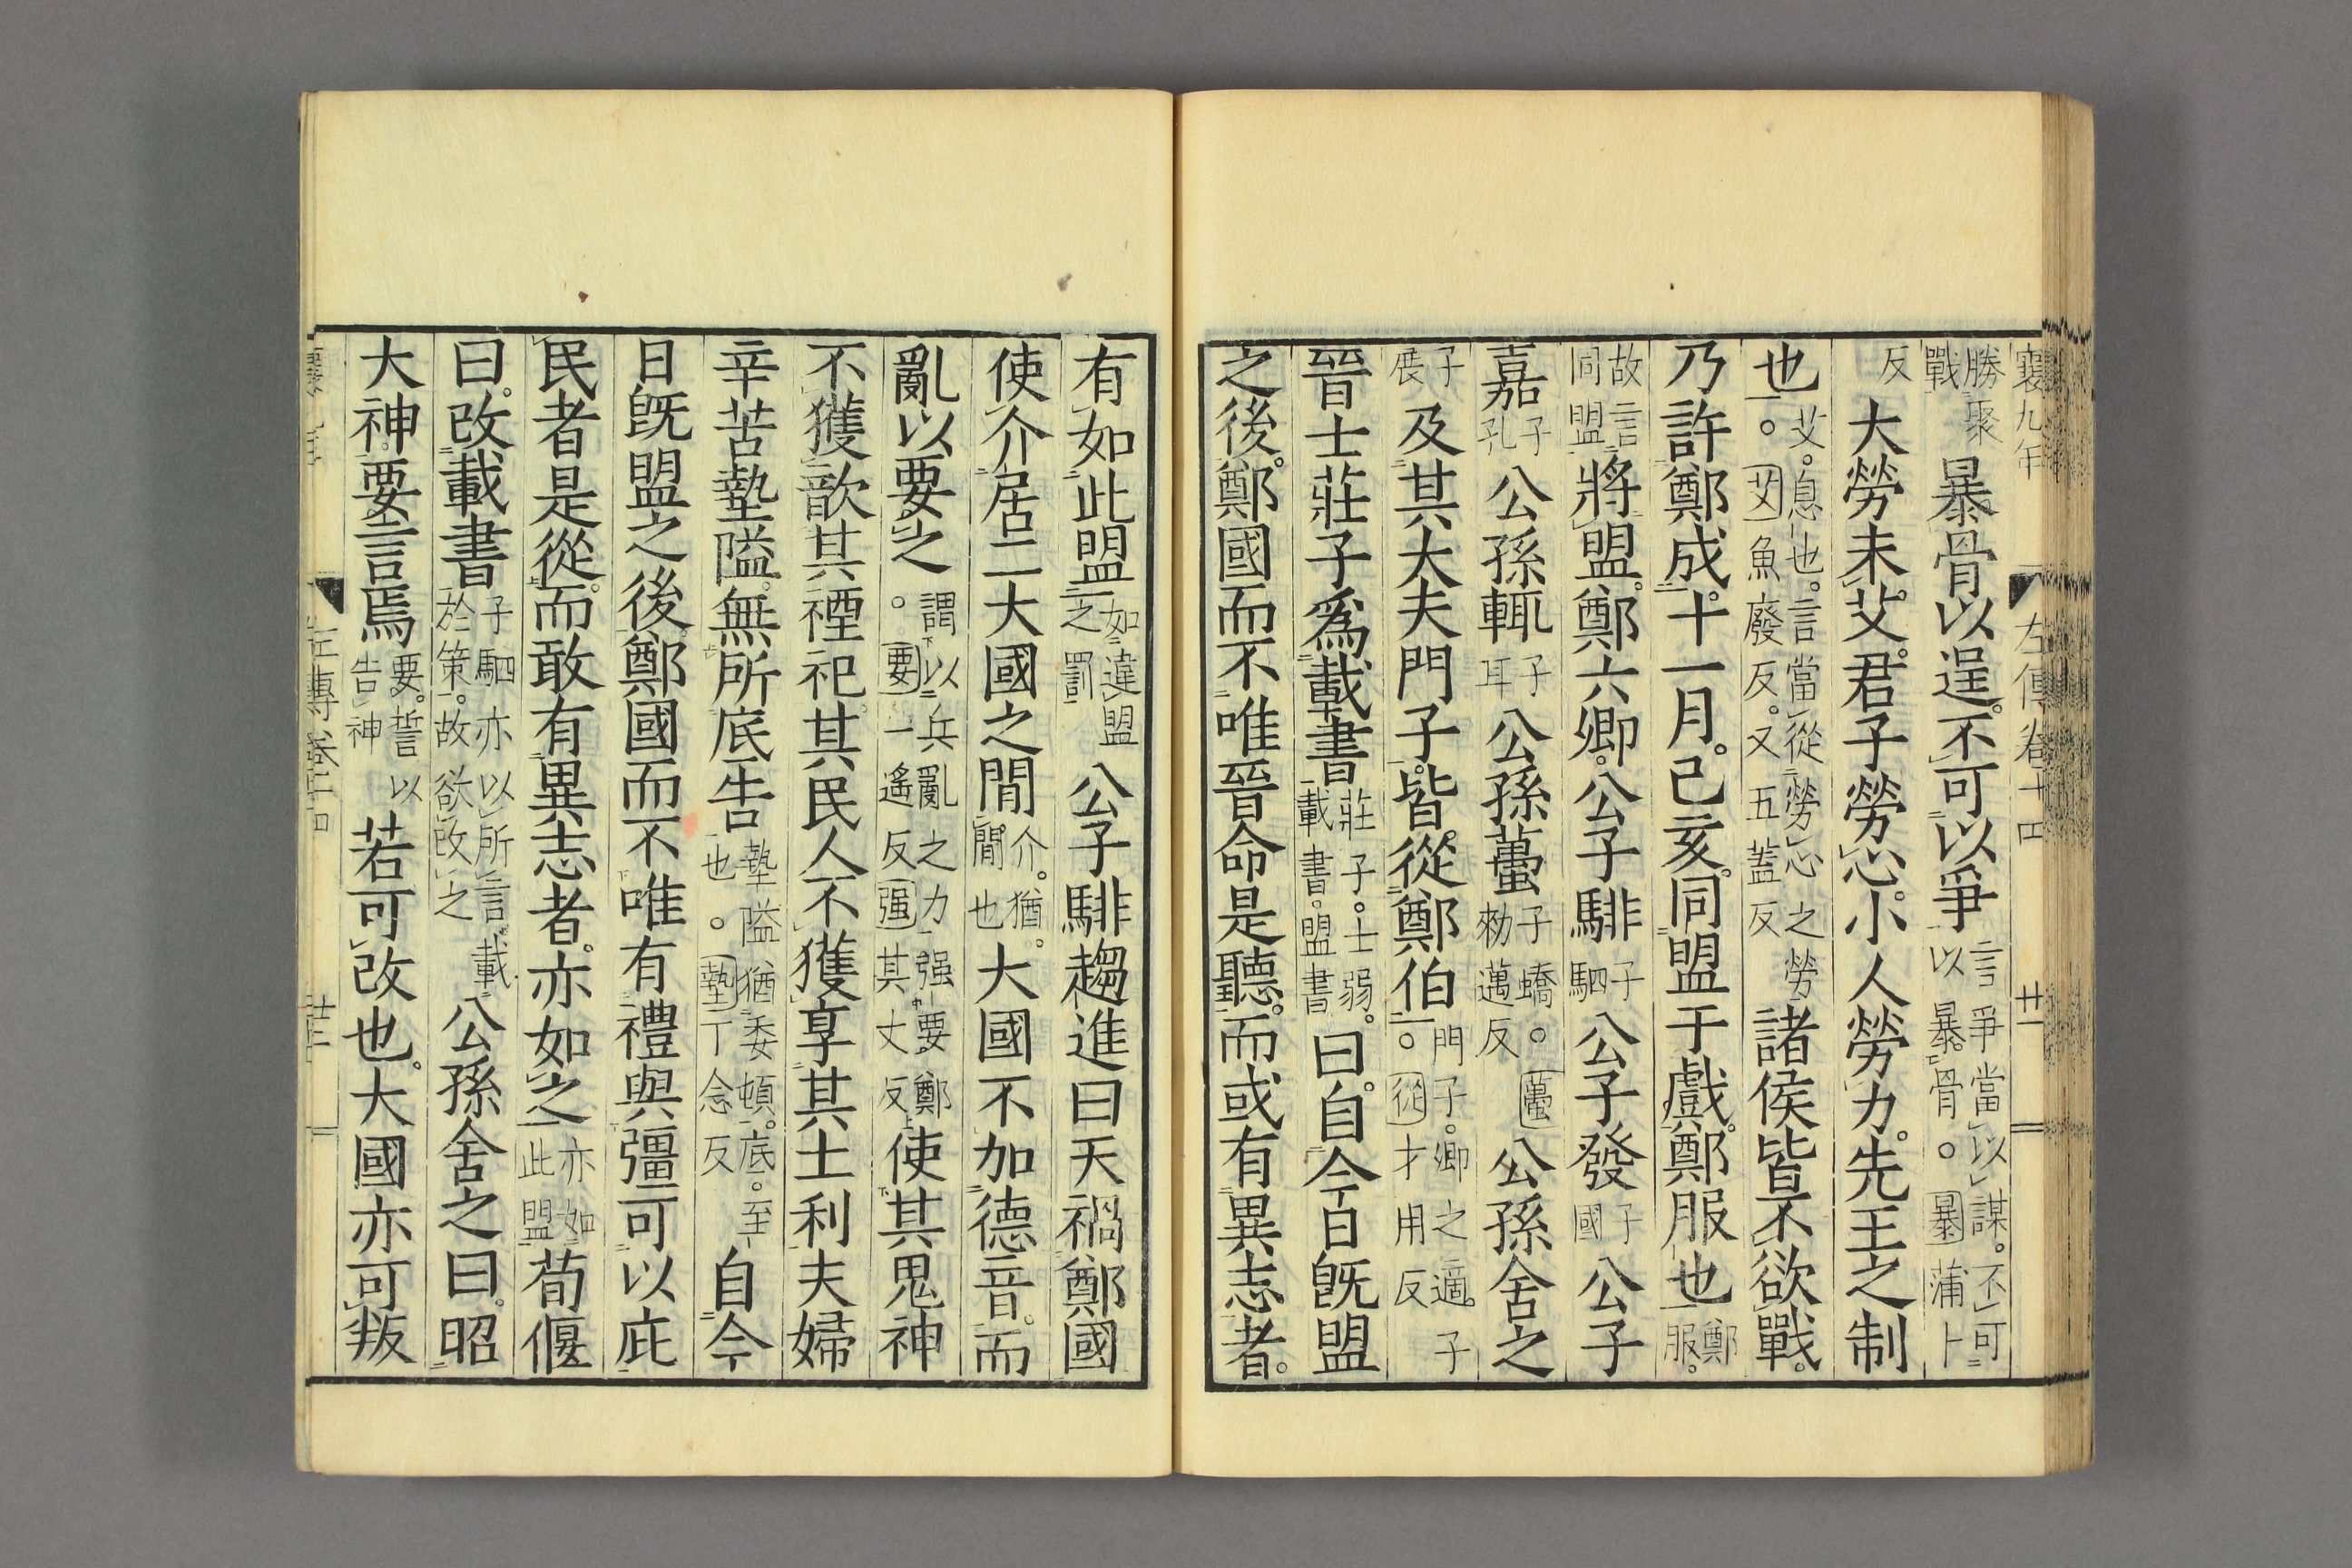 襄九年 左傳卷十四 廿一
勝聚戰暴骨以逞。不可以爭言爭當以謀。不可以暴骨。○暴蒲卜
反大勞未艾。君子勞心。小人勞力。先王之制
也。艾。息也。言當從勞心之勞○艾魚廢反。又五蓋反諸侯皆不欲戰。
乃許鄭成。十一月。己亥。同盟于戲。鄭服也鄭服。
故言同盟將盟。鄭六卿。公子騑子駟公子發子國公子
嘉子孔公孫輒子耳公孫蠆子蟜。○蠆勑邁反公孫舍之
子展及其大夫門子。皆從鄭伯門子。卿之適。子○從才用反
晉士莊子爲載書莊子。士弱。載書。盟書曰。自今日既盟
之後。鄭國而不唯晉命是聽。而或有異志者。
有如此盟如違盟之罰公子騑趨進曰天禍鄭國
使介居二大國之閒介。猶閒也。大國不加德音。而
亂以要之謂以兵亂之力强要鄭○要一遙反强其丈反使其鬼神
不獲歆其禋祀。其民人不獲享其土利夫婦
辛苦墊隘。無所底告墊隘猶委頓。底。至也。○墊丁念反自今
日既盟之後。鄭國而不唯有禮與彊可以庇
民者是從。而敢有異志者。亦如之亦如此盟荀偃
曰。改載書子駟亦以所言載於策。故欲改之公孫舍之曰。昭
大神。要言焉要。誓以告神若可改也。大國亦可叛